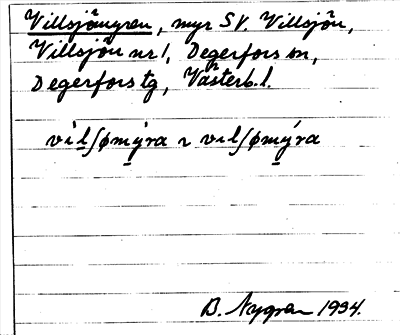 Villsjömyren, myr SV. Villsjön,
Villsjön nr 1, Degerfors sn,
Degerfors tg, Västerb. l.
vìlʃømýra ~ vılʃømýra
B. Nygren 1934.